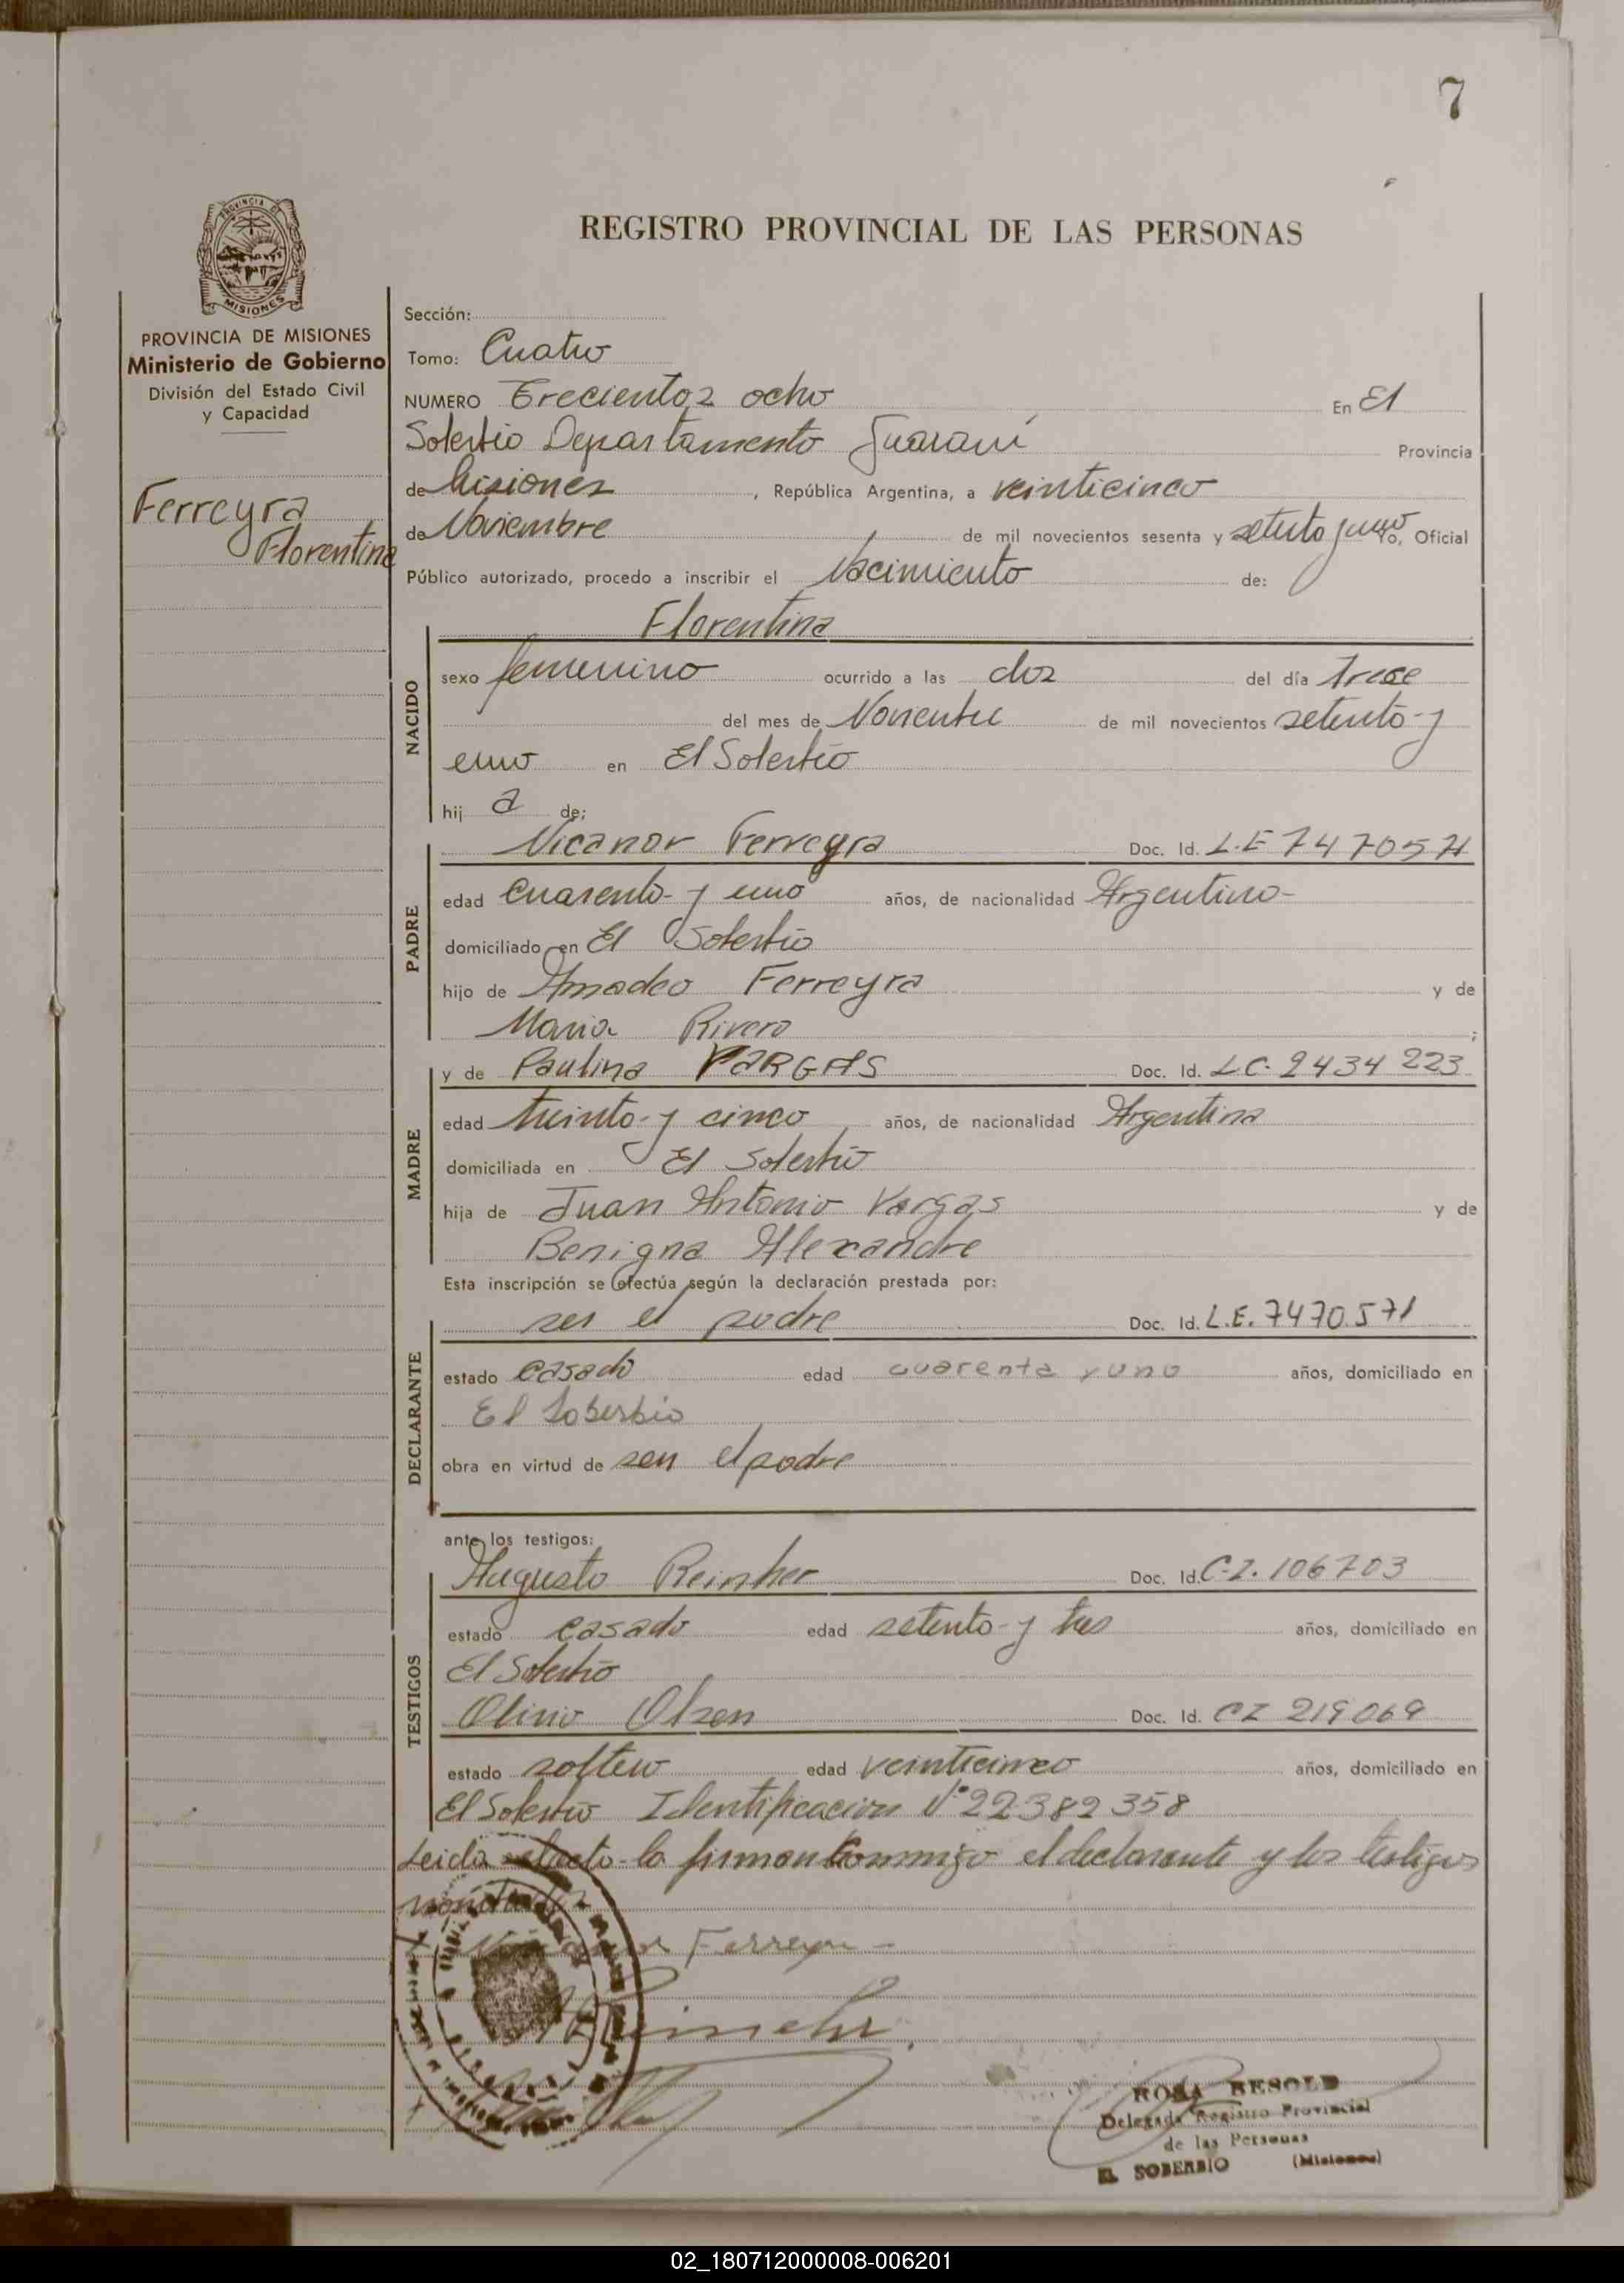 7
REGISTRO PROVINCIAL DE LAS PERSONAS
PROVINCIA DE
MISIONES
PROVINCIA DE MISIONES
Ministerio de Gobierno
División del Estado Civil
y Capacidad
Ferreyra
Florentina
Sección:
Tomo: Cuatro
NUMERO Trecientos ocho En El
Soberbio Departamento Guaraní Provincia
de Misiones, República Argentina, a veinticinco
de Noviembre de mil novecientos sesenta y setenta y uno yo, Oficial
Público autorizado, procedo a inscribir el Nacimiento de:
Florentina
NACIDO
sexo femenino ocurrido a las dos del día trece
del mes de Noviembre de mil novecientos setenta y
uno en El Soberbio
hij a de:
PADRE
Nicanor Ferreyra Doc. Id. L.E 7470571
edad cuarenta y uno años, de nacionalidad Argentino
domiciliado en El Soberbio
hijo de Amadeo Ferreyra y de
Maria Rivero ;
MADRE
y de Paulina VARGAS Doc. Id. LC. 2434 223
edad treinta y cinco años, de nacionalidad Argentina
domiciliada en El Soberbio
hija de Juan Antonio Vargas y de
Benigna Alexandre
Esta inscripción se efectúa según la declaración prestada por:
DECLARANTE
ser el padre Doc. Id. L.E. 7470.571
estado casado edad cuarenta y uno años, domiciliado en
El Soberbio
obra en virtud de ser el padre
ante los testigos:
TESTIGOS
Augusto Reinher Doc. Id. C.I. 106703
estado casado edad setenta y tres años, domiciliado en
El Soberbio
Olinio Olsen Doc. Id. CI 219069
estado soltero edad veinticinco años, domiciliado en
El Soberbio Identificacion N° 22382358
Leida el acto la firman conmigo el declarante y los testigos
Ferreyra
ROSA BESOLD
Delegada Registro Provincial
de las Personas
EL SOBERBIO (Misiones)
02_180712000008-006201